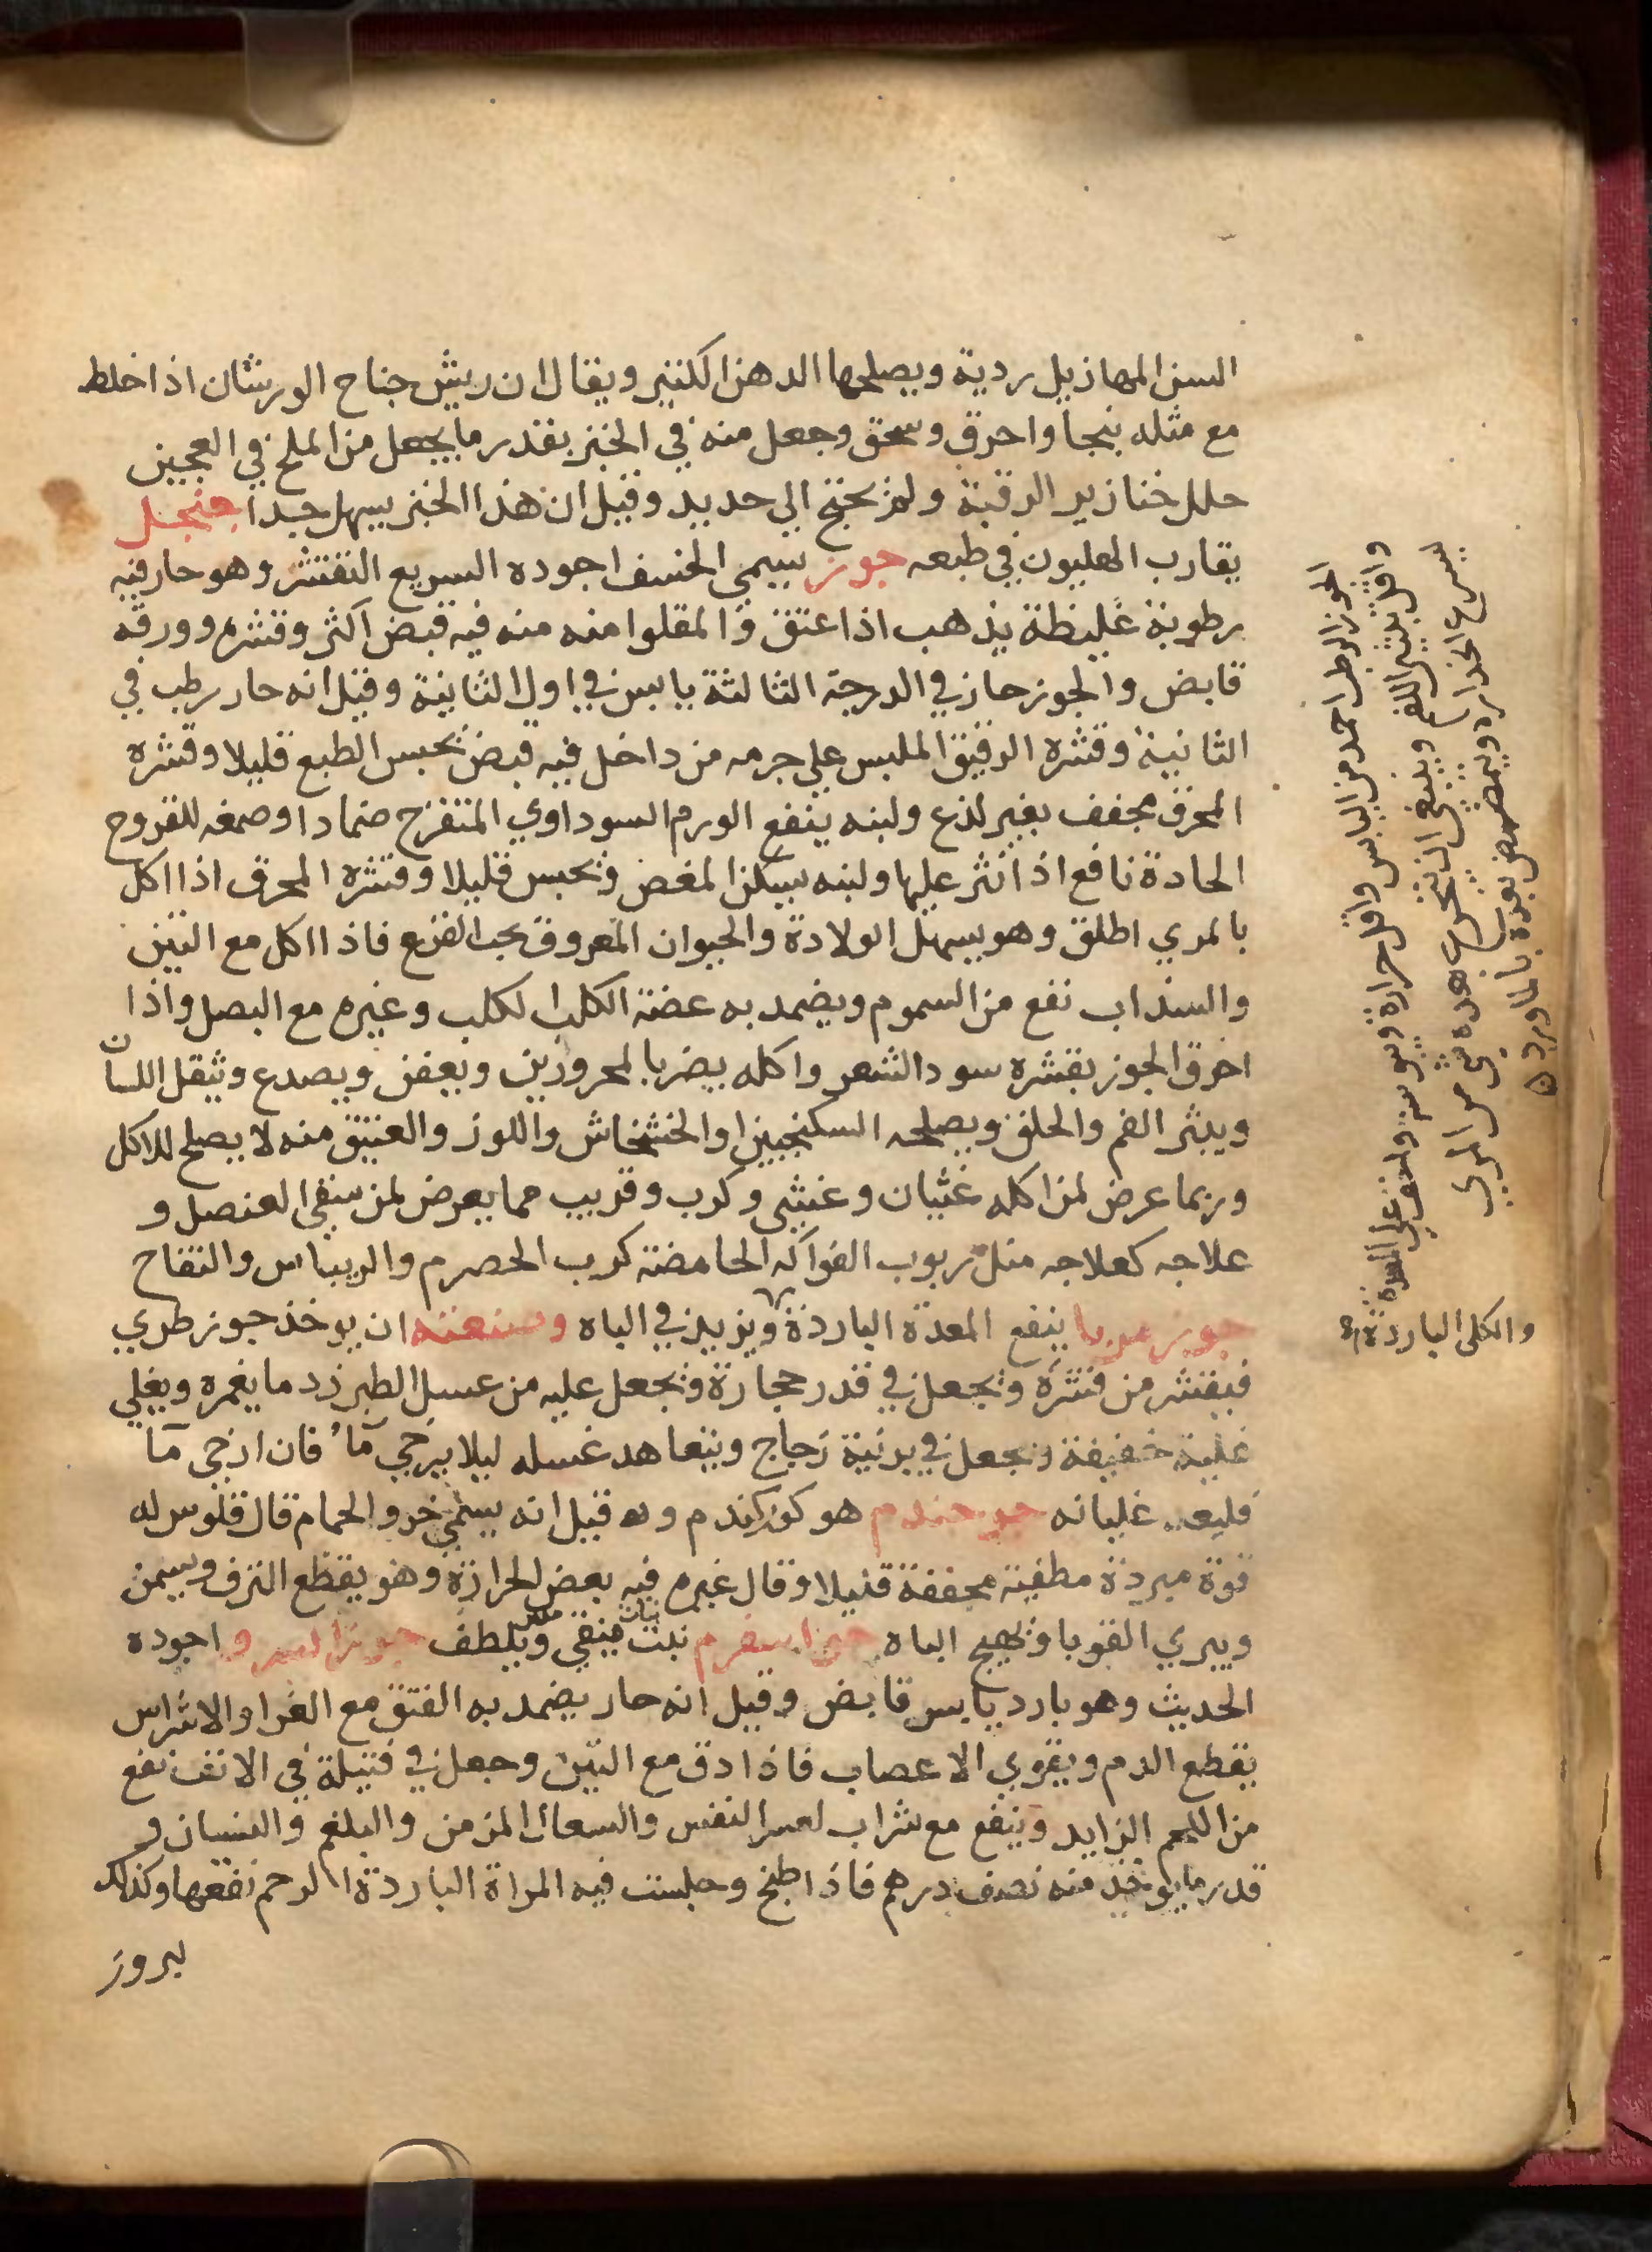 السن المهازيل ردية ويصلحها الدهن الكثير ويقال ان ريش جناح الورشان اذا خلط
مع مثله بنجا واحرق وسحق وجعل منه في الخبز بقدر ما يجعل من الملح في العجين
حلل خنازير الرقبة ولم يحتج الى حديد وقيل ان هذا الخبز يسهل جدا جنجل
يقارب الهليون في طبعه جوز يسمى الخسف اجوده السريع التقشر وهو حار فيه
رطوبة غليظة يذهب اذا عتق والمقلوا منه منه فيه قبض اكثر وقشره وورقه
قابض والجوز حار في الدرجة الثالثة يابس في اول الثانية وقيل انه حار رطب في
الثانية وقشره الرقيق الملبس علي جرمه من داخل فيه قبض يحبس الطبع قليلا وقشره
المحرق مجفف بغير لذع ولبنه ينفع الورم السوداوي المتقرح ضمادا وصمغه للقروح
الحادة نافع اذا نثر عليها ولبنه يسكن المغص ويحبس قليلا وقشره المحرق اذا اكل
بالمري اطلق وهو يسهل الولادة والحيوان المعروق بحب القرع فاذا اكل مع التين
والسذاب نفع من السموم ويضمد به عضة الكلب الكلب وغيره مع البصل واذا
احرق الجوز بقشره سود الشعر واكله يضر بالمحرورين ويعفن ويصدع ويثقل اللسان
ويبثر الفم والحلق ويصلحه السكنجبين او الخشخاش واللوز والعتيق منه لا يصلح للاكل
وربما عرض لمن اكله غثيان وغشي وكرب وقريب مما يعرض لمن سقي العنصل و
علاجه كعلاجه مثل ربوب الفواكه الحامضة كرب الحصرم والريباس والتفاح
جوز مربا ينفع المعدة الباردة ويزيد في الباه وصنعته ان يوخذ جوز طري
فيقشر من قشره ويجعل في قدر حجارة ويجعل عليه من عسل الطبرزد ما يغمره ويغلي
غلية خفيفة ويجعل في برنية زجاج ويتعاهد غسله ليلا يرخي مآء فان ارخى مآ
فليعد غليانه جوز جندم هو كوزكندم وقيل انه يسمى خرو الحمام قال قلوس له
قوة مبردة مطفية مجففة قليلا وقال غيره فيه بعض الحرارة وهو يقطع النزف ويسمن
ويبري القوبا ويهيج الباه نبت ينقي ويلطف جوز السرو اجوده
الحديث وهو بارد يابس قابض وقيل انه حار يضمد به الفتق مع الغرا والاشراس
يقطع الدم ويقوي الاعصاب فاذا دق مع التين وجعل في فتيلة في الانف نفع
من اللحم الزايد وينفع مع شراب لعسر النفس والسعال المزمن والبلغم والنسيان و
قدر ما يوخذ منه نصف درهم فاذا طبخ وجلست فيه المراة الباردة الرحم نفعها وكذلك
بروز
الجوز الرطب احمد من اليابس واقل حرارة ويبوسة وانفع علي المعدة
والكلى الباردة
واقل بثر الفم وينبغي ان يتحسى بعده شى من المري
يسرع انحداره ويتمضمض بعده بالماورد